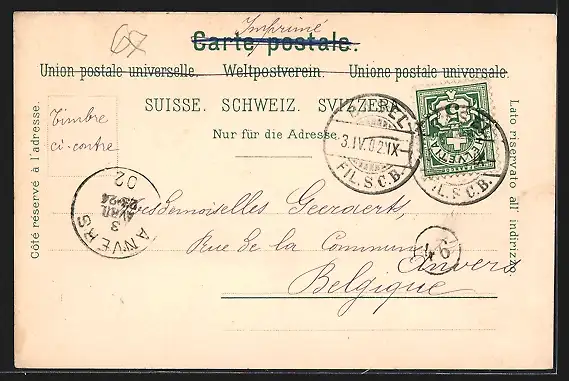 67
Imprimé
Carte postale.
Union postale universelle. Weltpostverein. Unione postale universale.
SUISSE. SCHWEIZ. SVIZZERA.
Nur für die Adresse.
Côté réservé à l'adresse.
Lato riservato all' indirizzo.
Timbre
ci-contre
BASEL
3.IV.02.IX
FIL.S.C.B.
HELVETIA
5
FIL.S.C.B.
ANVERS
3
AVRIL
02
Mesdemoiselles Geeraerts,
Rue de la Commune
Anvers
Belgique